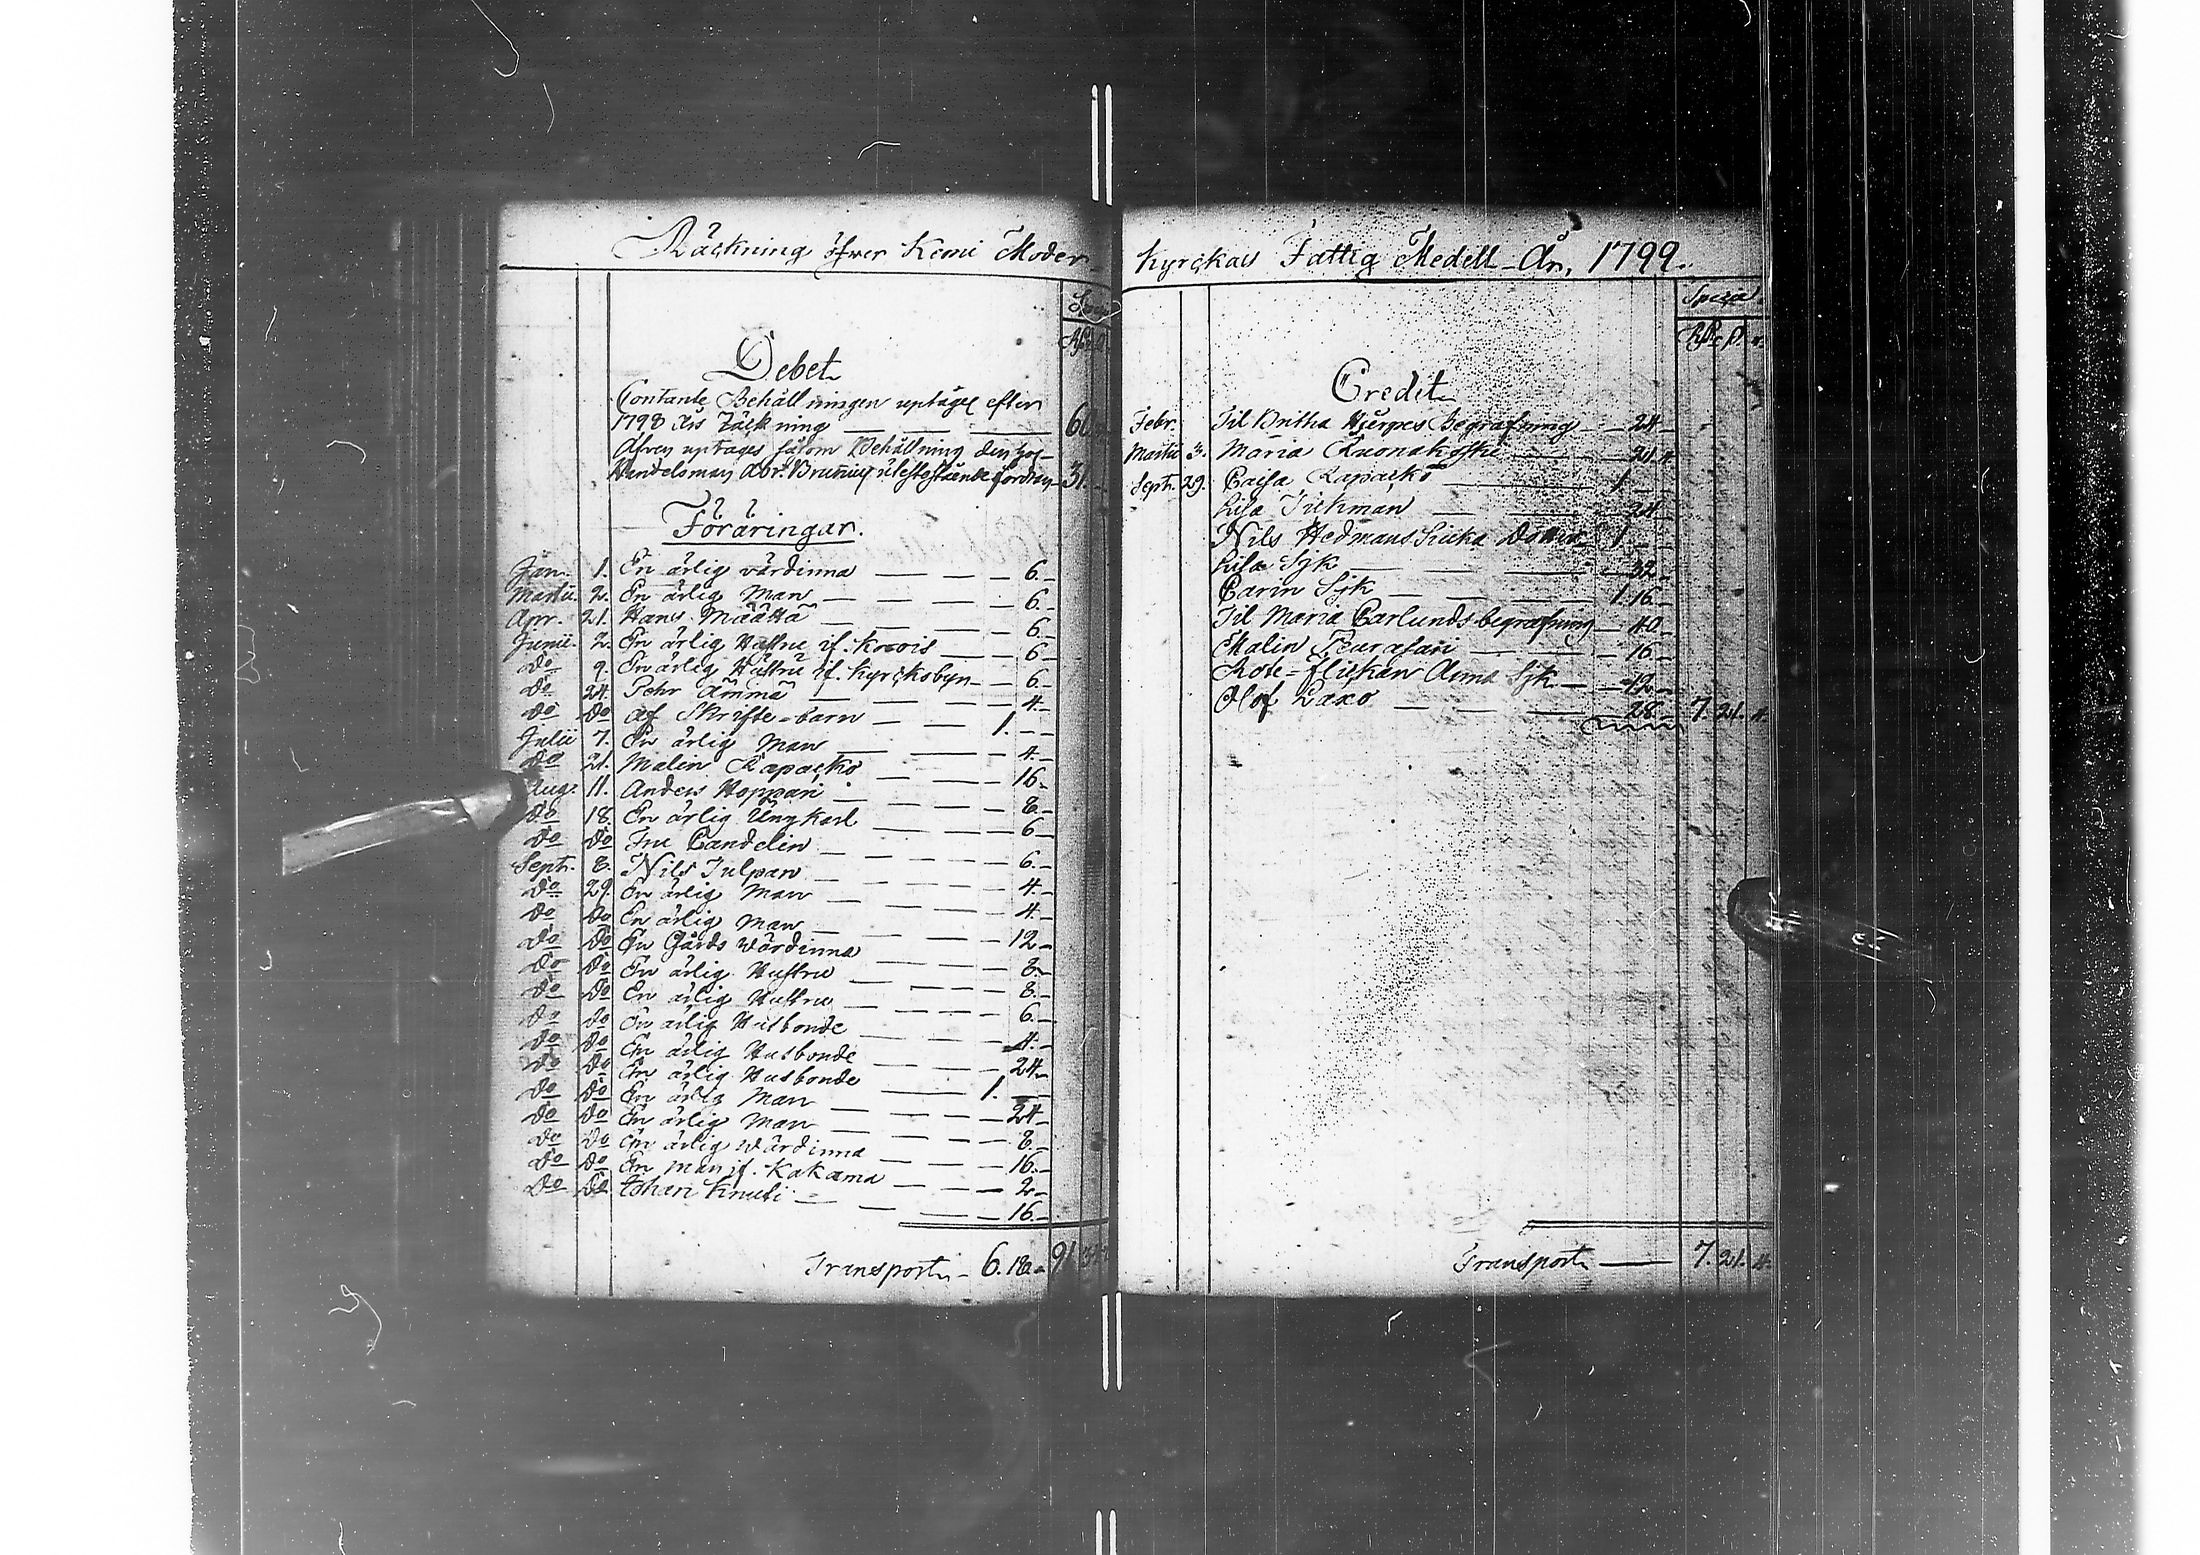 Räckning öfwer Kemi Moder-
Debet
Contante Behållningen uptages efter
1798 års Räckning — — 60
Äfven uptages såsom Behållning den hos
Handelsman Abr. Brunius utestående fordran 31.
Föräringar.
Jan. 1. En ärlig värdinna — — — 6.
Martii. 2. En ärlig Man — — — 6.
Apr. 21. Hans Määttä — — — 6.
Junii. 2. En ärlig Hustru if. — 6
Do 9. En ärlig Hustru if. Kyrckobyn — 6
Do 24. Pehr Ämmä — — — 4
Do Do af Skrifte-barn — — 1. — —
Julii 7. En ärlig Man — — — 4
Do 21. Malin Rapacko — — — 16
Aug. 11. Anders Hoppari — — — 8
Do 18. En ärlig Ungkarl — — — 6
Do Do Fru Candelin — — — 6
Sept. 8. Nils Julpan — — — 4
Do 29. En ärlig Man — — — 4
Do Do En ärlig Man — — — 12
Do Do En Gårds wärdinna — — — 8
Do Do En ärlig Hustru — — — 8
Do Do En ärlig Hustru — — — 6
Do Do En ärlig Husbonde — — — 4
Do Do En ärlig Husbonde — — — 24
Do Do En ärlig Husbonde — — 1. —
Do Do En ärlig Man — — — 24
Do Do En ärlig Man — — — 8
Do Do En ärlig wärdinna — — — 16
Do Do En man if. Kakama — — — 2
Do Do Johan Knuti — — — 16
Transport — 6. 18. 91
Kyrckas Fattig Medell - År, 1799.
Specie
Credit
Febr. Til Britha Hjerpes Begrafning — 24
Martii 3. Maria Ruonakoski — 21. 4.
Sept. 29. Caisa Rapacko — 1. —
Lisa Tickman — 24
Nils Hedmans Siuka Dotter 1. —
Lisa Sjk — 32
Carin Sjk — 1. 16
Til Maria Carlunds begrafning — 40
Malin — 16
Rote-flickan Anna Sjk — 12
Olof Laxo — 28 7. 21. 4.
Transport — 7. 21. 4.